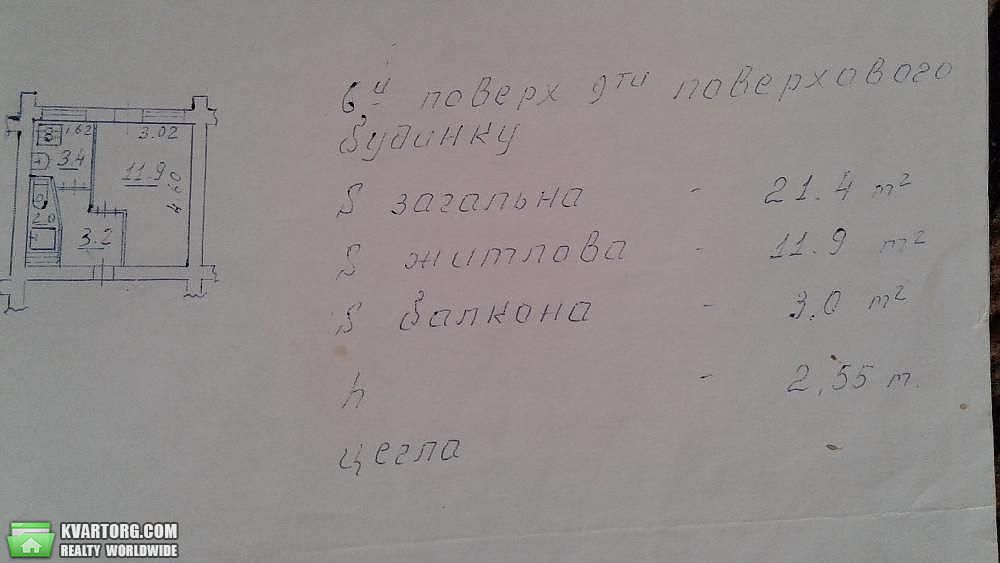 6й поверх 9ти поверхового
будинку
S загальна - 21.4 m²
S житлова - 11.9 m²
S балкона - 3,0 m²
h - 2,55 m.
цегла
1.62 3.02
3.4 11.9
4.60
2.0
3.2
KVARTORG.COM
REALTY WORLDWIDE